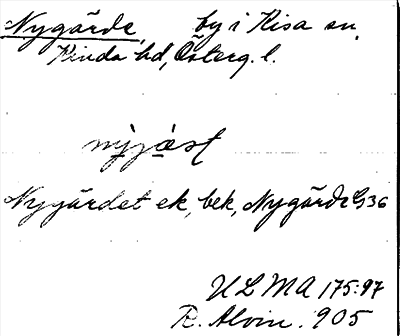 Nygärde, by i Kisa sn,
Kinda hd, Österg. l.
Nygärdet ek, bek, Nygärde G36
ULMA 175:97
R. Alvin. 905